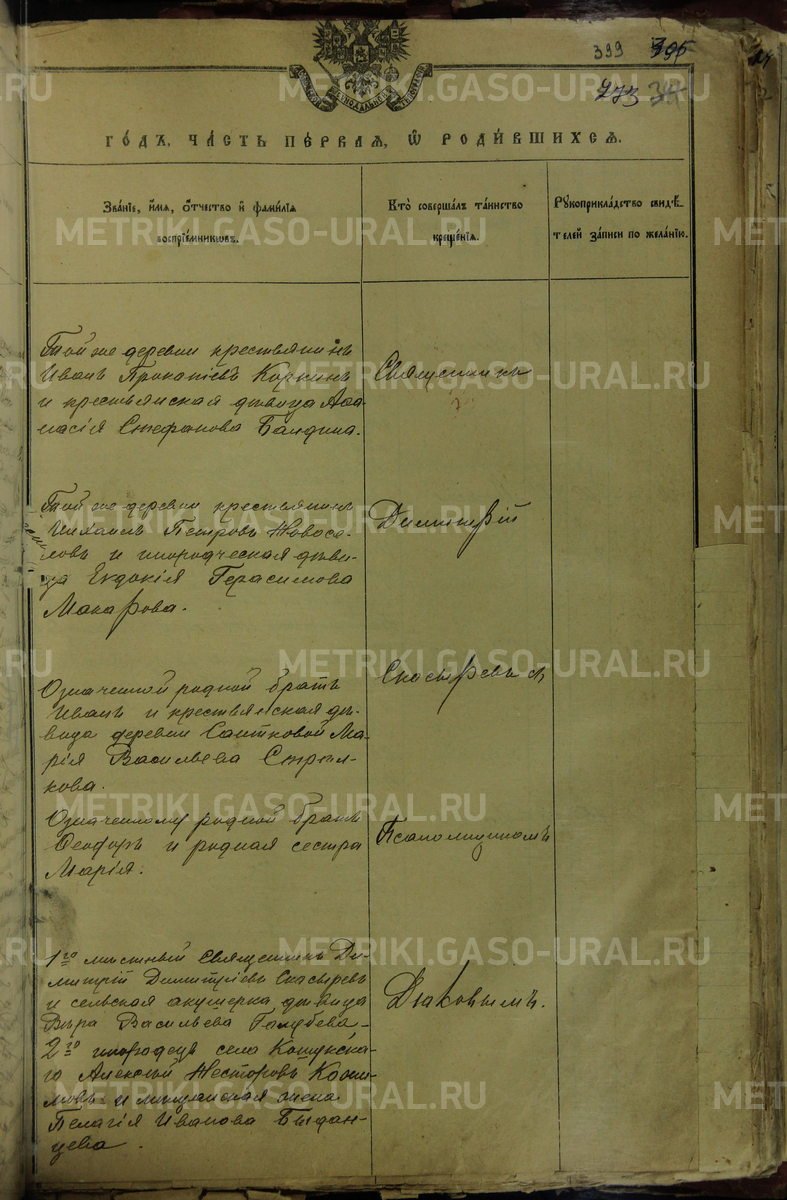 399 395
273
METRIKI.GASO-URAL.RU
ГОДЪ, ЧАСТЬ ПЕРВАЯ, Ѿ РОДИВШИХСЯ.
Званіе, имя, отчество и фамилія воспріемниковъ.
Кто совершалъ таинство крещенія.
Рукоприкладство свидѣтелей записи по желанію.
METRIKI.GASO-URAL.RU
Той же деревни крестьянинъ
Иванъ Прокопіевъ Коркинъ
и крестьянская дѣвица Аѳа-
насія Стефанова Бандина.
Священникъ
METRIKI.GASO-URAL.RU
Той же деревни крестьянинъ
Михаилъ Петровъ Новосе-
ловъ и инородческая дѣви-
ца Евдокія Герасимова
Макарова.
Димитрій
METRIKI.GASO-URAL.RU
Означенной родной братъ
Иванъ и крестьянская дѣ-
вица деревни Саитковой Ма-
рія Васильева Стрѣл-
кова.
Скосыревъ съ
METRIKI.GASO-URAL.RU
Означенному родной братъ
Ѳеодоръ и родная сестра
Марія.
Псаломщикомъ
METRIKI.GASO-URAL.RU
1го мѣстный Священникъ Ди-
митрій Димитріевъ Скосыревъ
и сельская акушерка дѣвица
Вѣра Васильева Голубева
2го инородецъ села Кошукска-
го Алексѣй Несторовъ
и мѣщанская жена
Пелагія Иванова Быдан-
цева.
Дьяковымъ.
METRIKI.GASO-URAL.RU
METRIKI.GASO-URAL.RU